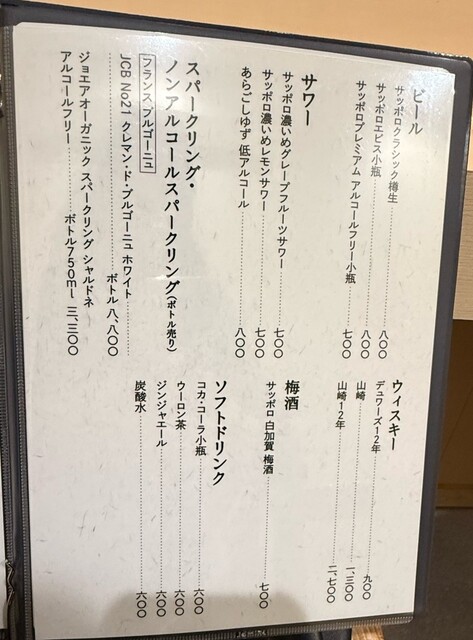 ビール
サッポロクラシック樽生 八〇〇
サッポロエビス小瓶 八〇〇
サッポロプレミアム アルコールフリー小瓶 七〇〇
サワー
サッポロ濃いめグレープフルーツサワー 七〇〇
サッポロ濃いめレモンサワー 七〇〇
あらごしゆず 低アルコール 八〇〇
スパークリング・
ノンアルコールスパークリング(ボトル売り)
フランス ブルゴーニュ
JCB No21 クレマン・ド・ブルゴーニュ ホワイト
ボトル 八、八〇〇
ジョエア オーガニック スパークリング シャルドネ
アルコールフリー ボトル750ml 三、三〇〇
ウィスキー
デュワーズ12年 九〇〇
山崎 一、三〇〇
山崎12年 二、七〇〇
梅酒
サッポロ 白加賀 梅酒 七〇〇
ソフトドリンク
コカ・コーラ小瓶 六〇〇
ウーロン茶 六〇〇
ジンジャエール 六〇〇
炭酸水 六〇〇